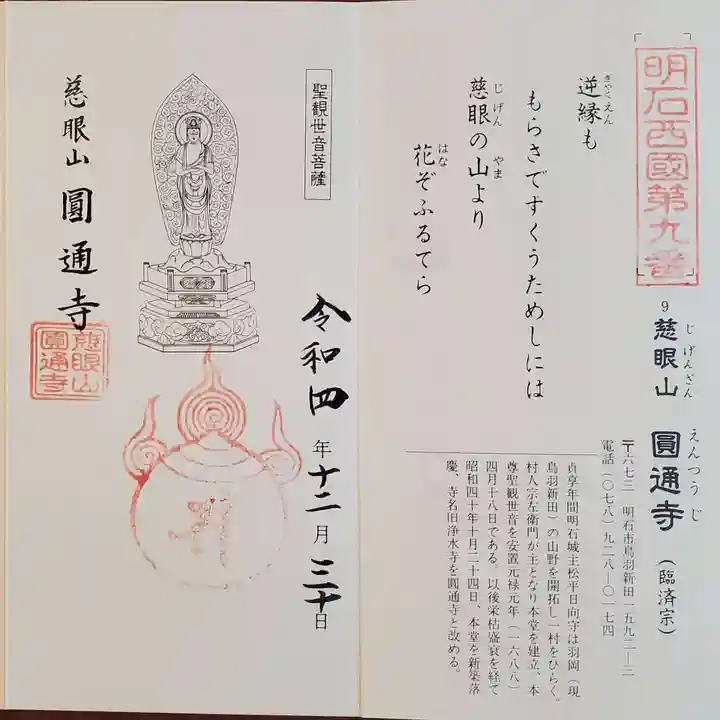 明石西國第九番
9 慈眼山 圓通寺(臨済宗)
じげんざん えんつうじ
〒六七三 明石市鳥羽新田一五九二―三
電話(〇七八)九二八―〇一七四
貞享年間明石城主松平日向守は羽岡(現
鳥羽新田)の山野を開拓し一村をひらく。
村人宗左衛門が主となり本堂を建立、本
尊聖観世音を安置元禄元年(一六八八)
四月十八日である。以後栄枯盛衰を経て
昭和四十年十月二十四日、本堂を新築落
慶、寺名旧浄水寺を圓通寺と改める。
逆縁も
ぎゃくえん
もらさですくうためしには
慈眼の山より
じげん やま
花ぞふるてら
はな
聖観世音菩薩
令和四年十二月三十日
慈眼山 圓通寺
慈眼山
圓通寺